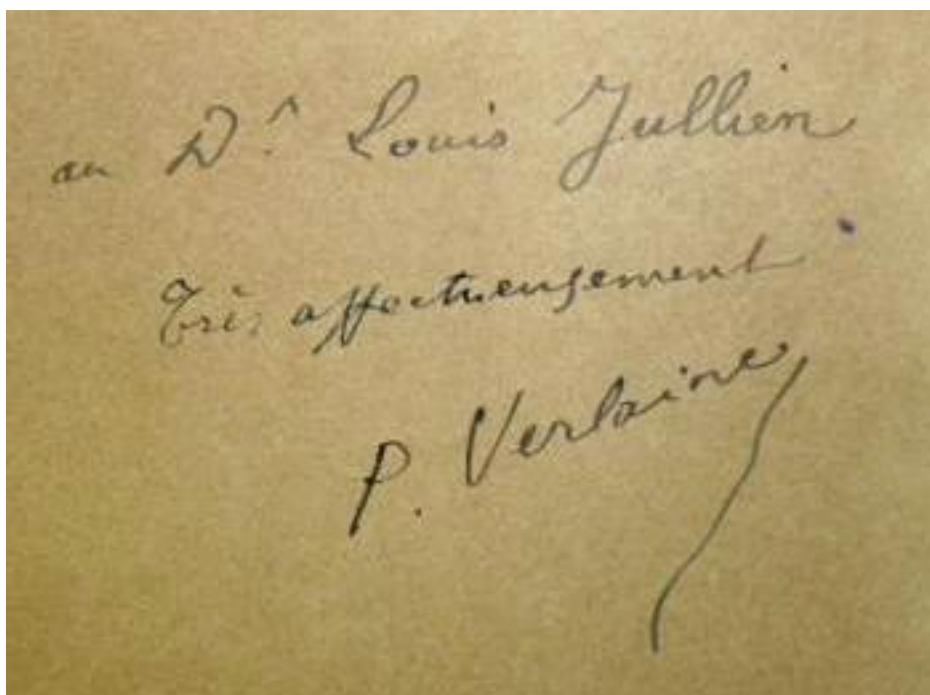 au Dr. Louis Jullien
Très affectueusement
P. Verlaine